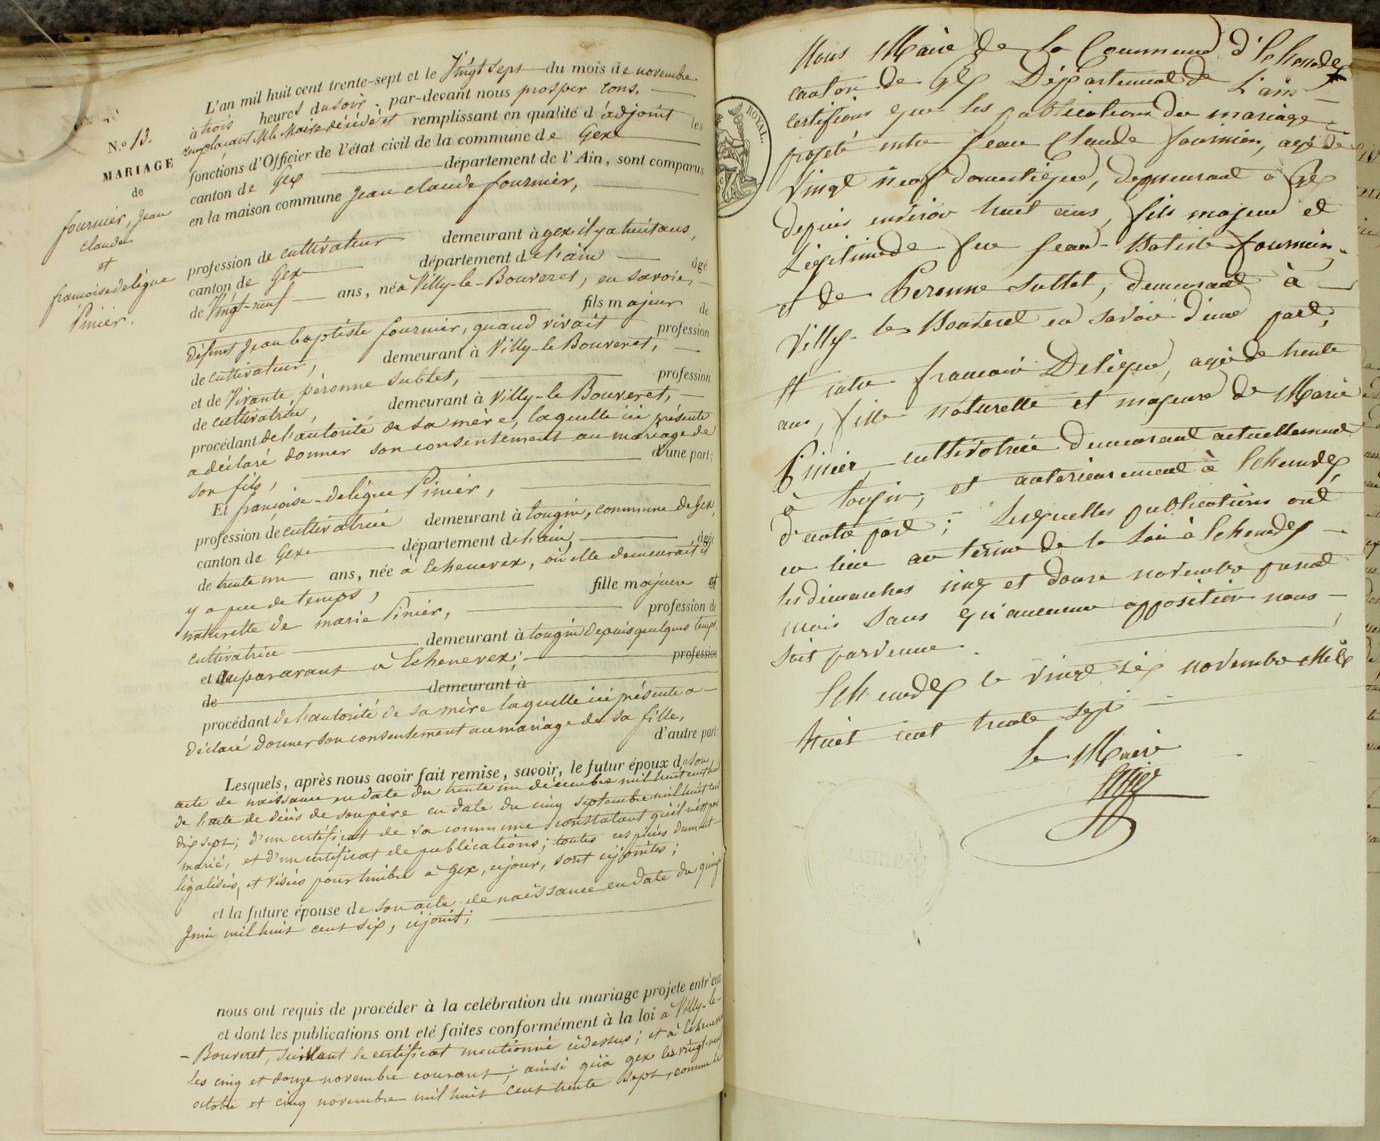 N.o 13.
MARIAGE
de
fournier, Jean
claude
et
francoise deléque
Pinier.
L'an mil huit cent trente-sept et le Vingt sept du mois de novembre
à trois heures du soir, par-devant nous prosper
remplaçant Mr le Maire décédé et remplissant en qualité d'adjoint les
fonctions d'Officier de l'état civil de la commune de Gex
canton de Gex département de l'Ain, sont comparus
en la maison commune Jean claude fournier,
profession de cultivateur demeurant à gex il y a huit ans,
canton de Gex département de l'ain âgé
de Vingt-neuf ans, né à Villy-le-Bouveret, en savoie,
fils majeur de
défunt Jean baptiste fournier, quand vivait profession
de cultivateur, demeurant à Villy-le-Bouveret,
et de Vivante, péronne subtet, profession
de cultivatrice, demeurant à Villy-le-Bouveret,
procédant de l'autorité de sa mère, laquelle ici présente
a déclaré donner son consentement au mariage de
son fils, d'une part;
Et françoise deléque Pinier,
profession de cultivatrice demeurant à tougin, commune de Gex,
canton de Gex département de l'ain, âgée
de trente un ans, née à Echenevex, où elle demeurait il
y a peu de temps, fille majeure et
naturelle de marie Pinier, profession de
cultivatrice demeurant à tougin depuis quelques temps,
et auparavant à Echenevex; profession
de demeurant à
procédant de l'autorité de sa mère laquelle ici présente a
déclaré donner son consentement au mariage de sa fille,
d'autre part;
Lesquels, après nous avoir fait remise, savoir, le futur époux de son
acte de naissance en date du trente un décembre mil huit cent huit
de l'acte de décès de son père en date du cinq septembre mil huit cent
dix sept; d'un certificat de sa commune constatant qu'il n'est pas
marié, et d'un certificat de publications; toutes ces pièces dument
légalisées, et visées pour timbre à Gex, ce jour, sont ci jointes;
et la future épouse de son acte de naissance en date du quinze
Juin mil huit cent six, ci joint;
nous ont requis de procéder à la celébration du mariage projeté entr'eux
et dont les publications ont été faites conformément à la loi à Villy-le-
-Bouveret, suivant le certificat mentionné ci dessus; et à Echenevex
les cinq et douze novembre courant; ainsi qu'à gex les vingt-neuf
octobre et cinq novembre mil huit cent trente sept, comme le
ROYAL
Nous Maire de la Commune d'Echenevex
canton de Gex Département de L'ain
certifions que les publications du mariage
projeté entre Jean Claude fournier, agé de
vingt neuf domestique, demeurant à Gex
depuis environ huit ans, fils majeur et
Légitime de feu Jean-Batiste fournier,
et de Peronne Subtet, demeurant à
Villy-le Bouveret en savoie d'une part,
Et entre francoise Deléque, agée de trente
ans, fille naturelle et majeure de Marie
Pinier, cultivatrice demeurant actuellement
à tougin, et anterieurement à Echenevex
d'autre part; Lesquelles publications ont
eu lieu au terme de la Loi à Echenevex
les dimanches cinq et douze novembre present
mois sans qu'aucune opposition nous
soit parvenue.
Echenevex le vingt six novembre Mil
huit cent trente sept
Le Maire
MAIRIE